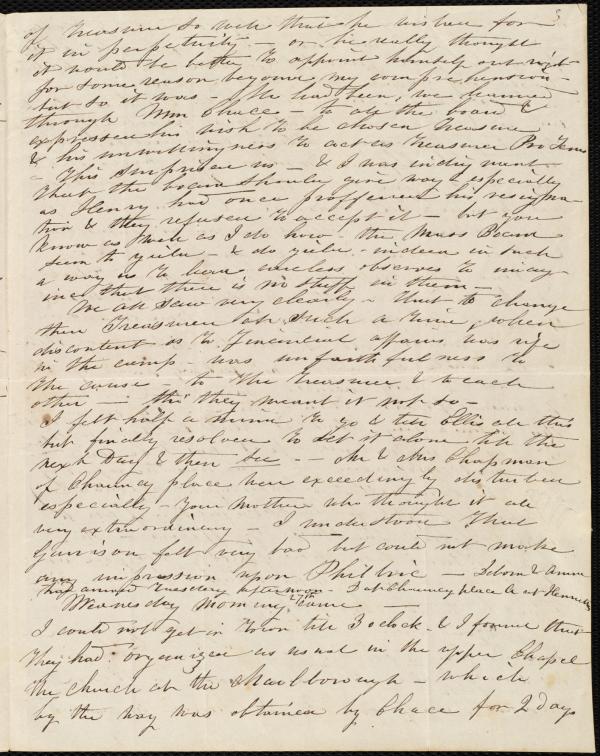 3
of Treasurer so well that he wished for
it in perpetuity — or he really thought
it would be better to appoint himself out right
for some reason beyond my comprehension —
but so it was — He had been, we learned
through Wm Chace — to all the board &
expressed his wish to be chosen Treasurer
& his unwillingness to act as Treasurer Pro Tem
— This surprised us — & I was indignant
that the board should give way — especially
as Henry had once proffered his resigna-
tion & they refused to accept it — but you
know as well as I do how the Mass Board
seem to yield — & do yield indeed in such
a way as to lead careless observers to imag-
ine that there is no stuff in them —
We all saw very clearly that to change
their Treasurer at such a time, when
discontent as to financial affairs was rife
in the camp — was unfaithfulness to
the cause — to the Treasurer & to each
other — tho' they meant it not so —
I felt half a mind to go & tell Ellis all this
but finally resolved to let it alone till the
next Day & then see — Mr & Mrs Chapman
of Chauncy place were exceedingly disturbed
especially — Your Mother who thought it all
very extraordinary — I understood that
Garrison felt very bad but could not make
any impression upon Philbric — Debora & Anne
had arrived Tuesday afternoon — D at Chauncy place A at Henrietta's
Wednesday Morning 27th came —
I could not get in Town till 3 oclock & I found that
they had organized as usual in the upper Chapel
the church at the Marlborough — which
by the way was obtained by Chace for 2 Days